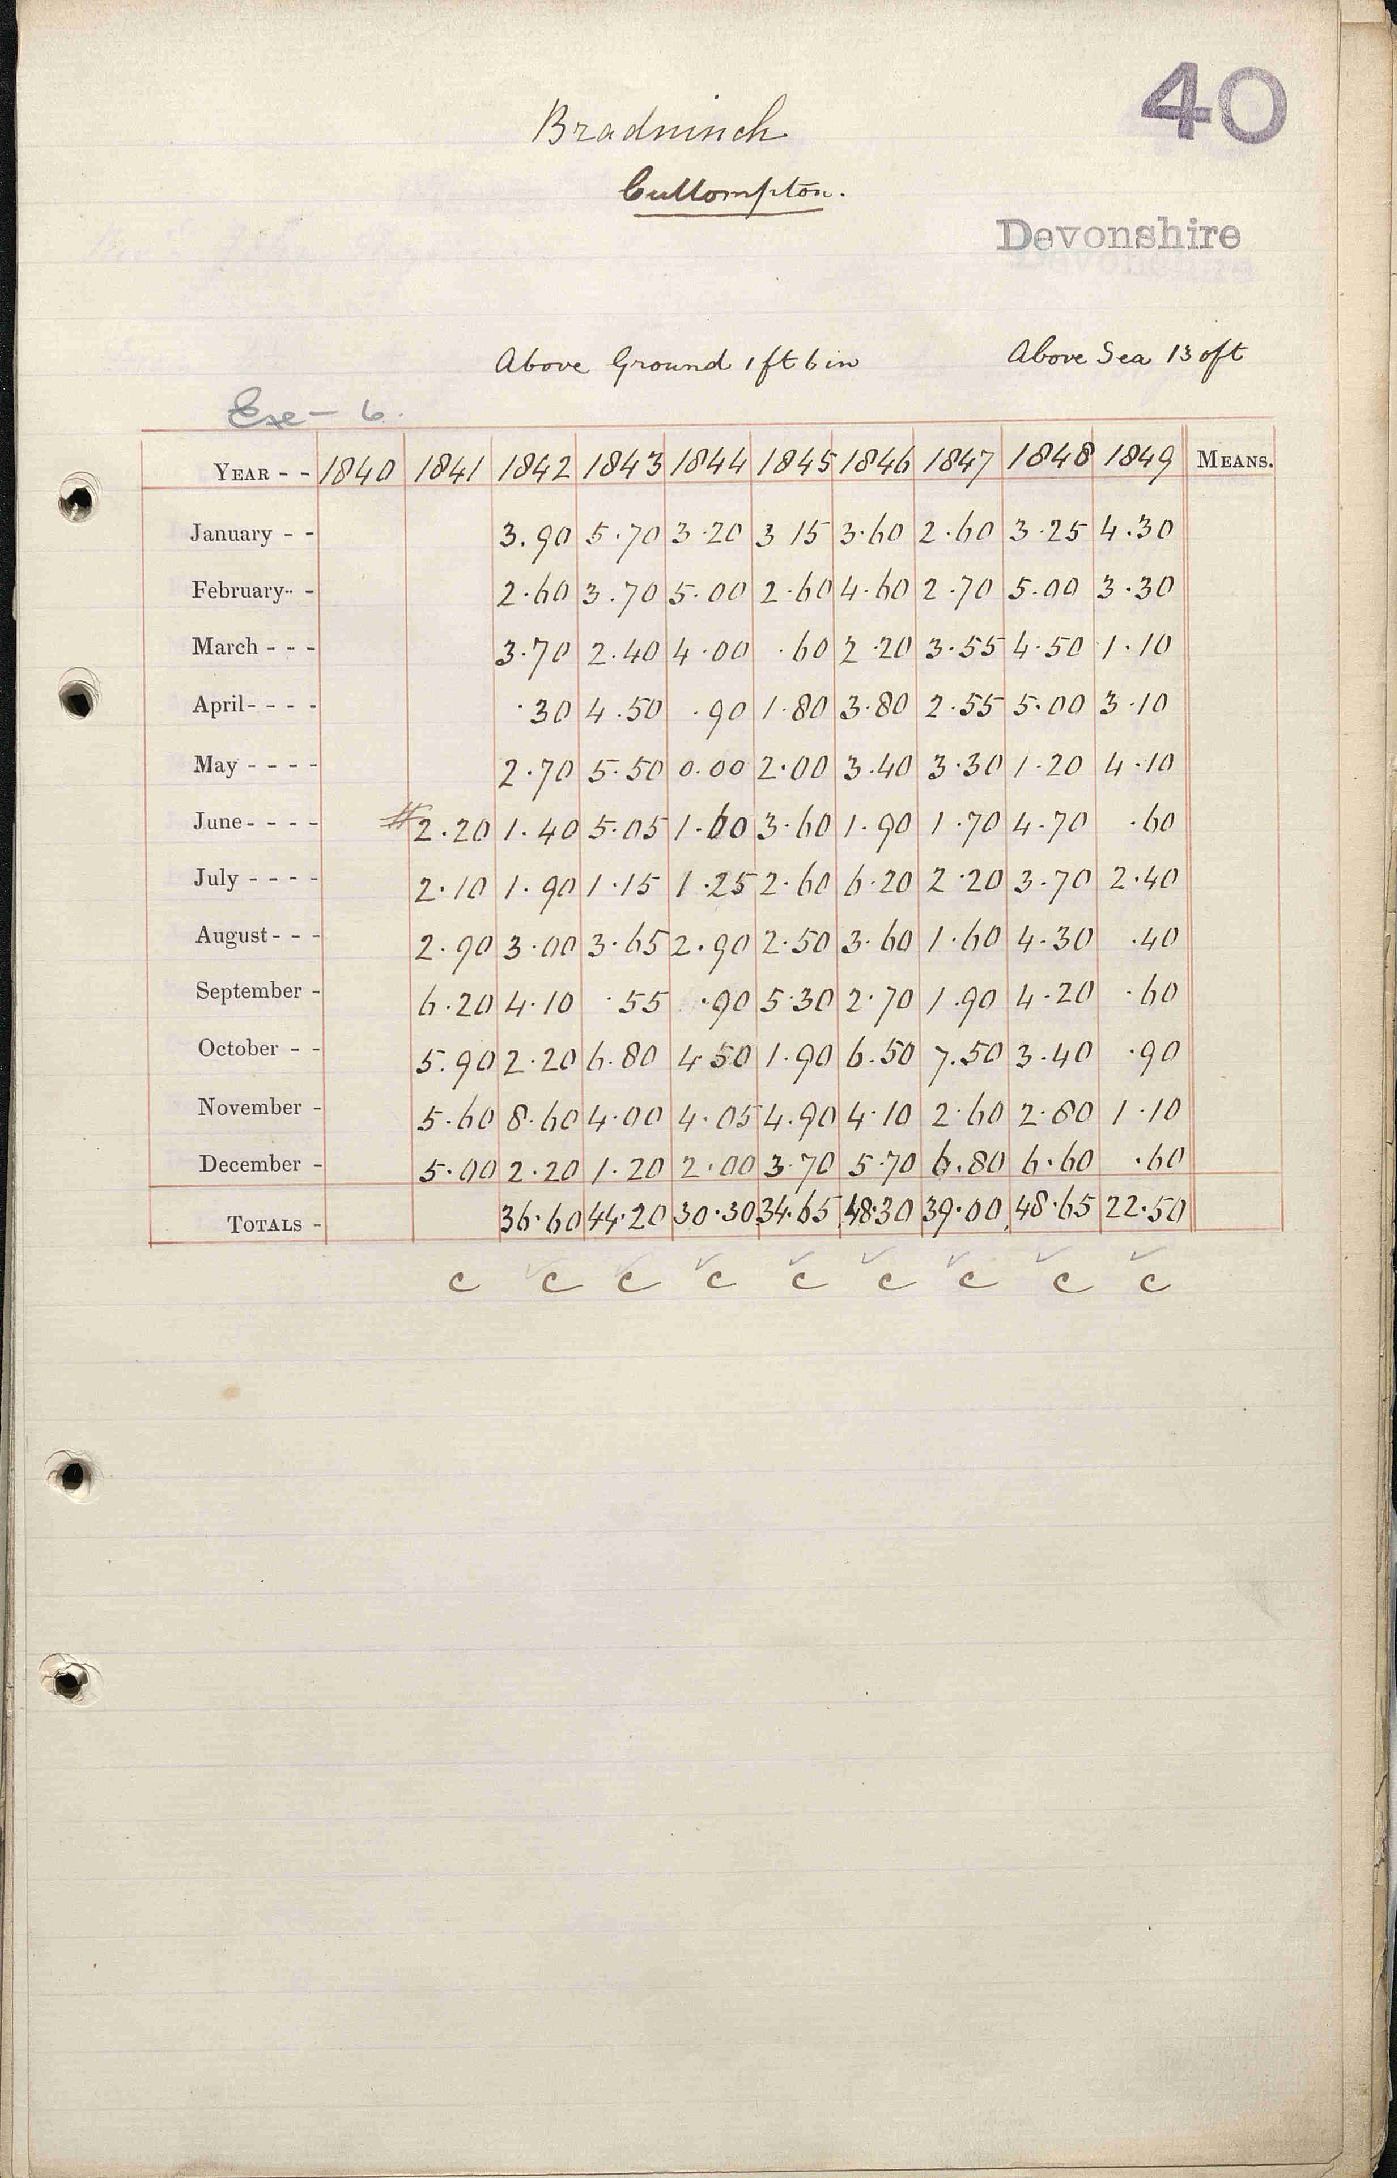 40
Bradninch
Cullompton.
Devonshire
Above Ground 1 ft 6 in Above Sea 130ft
Exe - 6.
YEAR - - 1840 1841 1842 1843 1844 1845 1846 1847 1848 1849 MEANS.
January - - 3.90 5.70 3.20 3 15 3.60 2.60 3.25 4.30
February - - 2.60 3.70 5.00 2.60 4.60 2.70 5.00 3.30
March - - - 3.70 2.40 4.00 .60 2.20 3.55 4.50 1.10
April - - - - .30 4.50 .90 1.80 3.80 2.55 5.00 3.10
May - - - - 2.70 5.50 0.00 2.00 3.40 3.30 1.20 4.10
June - - - - # 2.20 1.40 5.05 1.60 3.60 1.90 1.70 4.70 .60
July - - - - 2.10 1.90 1.15 1.25 2.60 6.20 2.20 3.70 2.40
August - - - 2.90 3.00 3.65 2.90 2.50 3.60 1.60 4.30 .40
September - 6.20 4.10 .55 .90 5.30 2.70 1.90 4.20 .60
October - - 5.90 2.20 6.80 4.50 1.90 6.50 7.50 3.40 .90
November - 5.60 8.60 4.00 4.05 4.90 4.10 2.60 2.80 1.10
December - 5.00 2.20 1.20 2.00 3.70 5.70 6.80 6.60 .60
TOTALS - 36.60 44.20 30.30 34.65 48.30 39.00 48.65 22.50
c c c c c c c c c